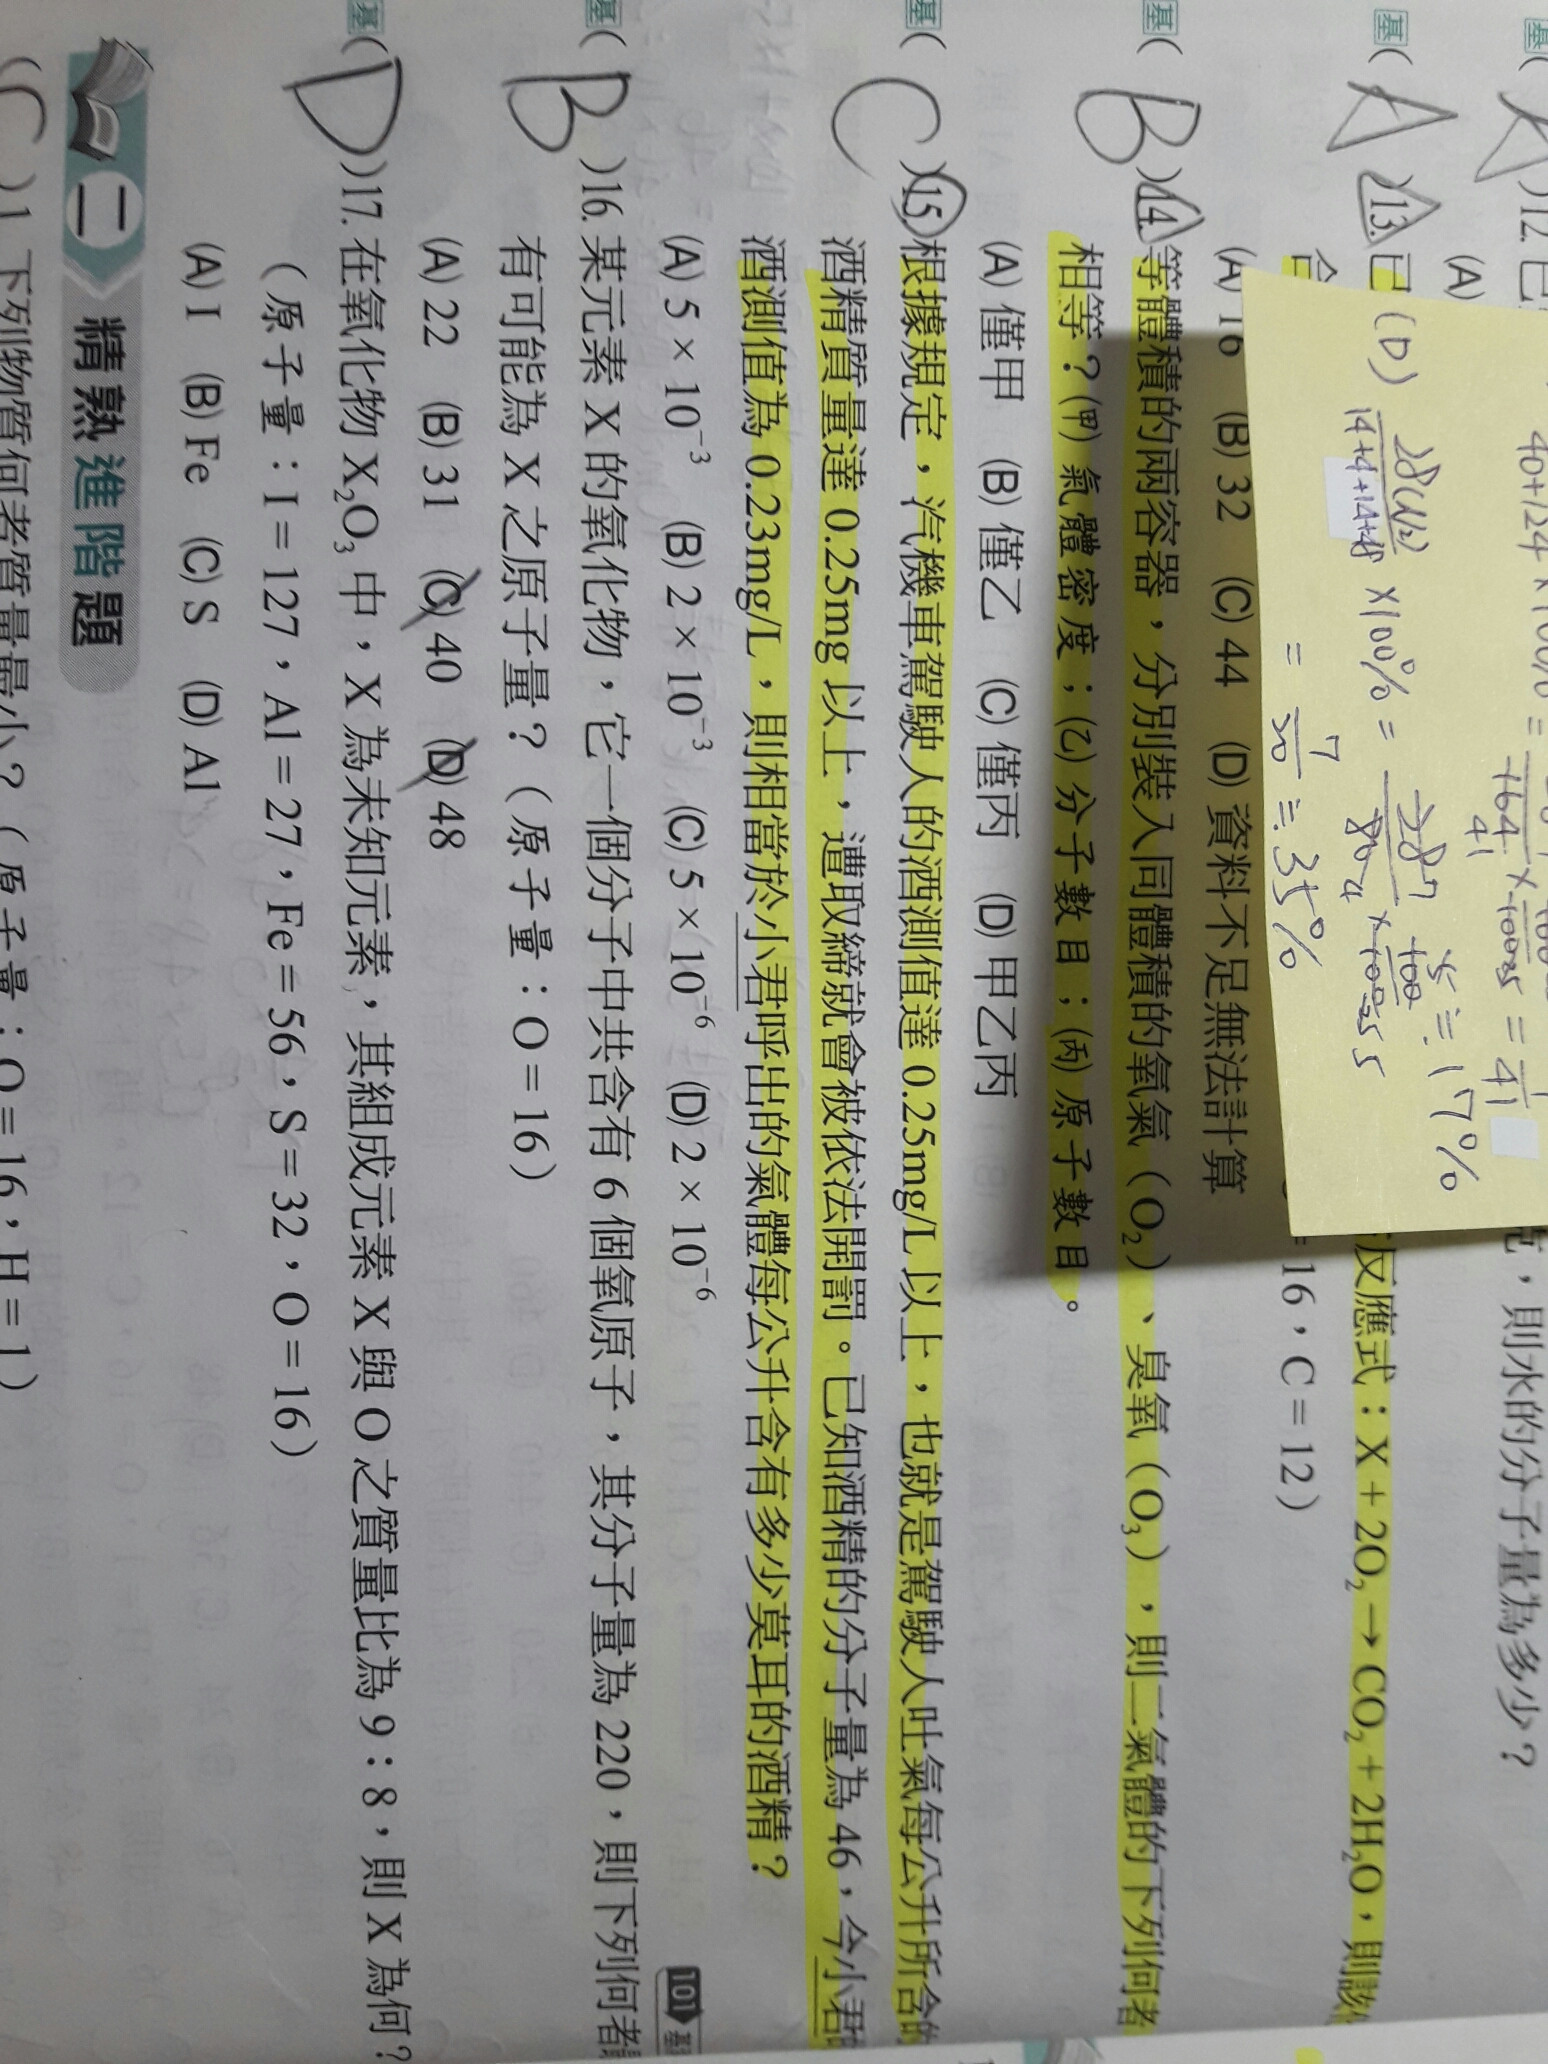 40+124×100%=
164 41
100 25
= 1/41
≒17%
(D) 28(N2)/14+4+14+48 ×100% = 28 7/80 4 × 100 25 5
= 7/20 ≒ 35%
基( )12. 已
克,則水的分子量為多少?
(A)
基( A )13. 已
反應式:X + 2O₂ → CO₂ + 2H₂O,則該
合
16,C = 12)
(A) 16 (B) 32 (C) 44 (D) 資料不足無法計算
基( B )14. 等體積的兩容器,分別裝入同體積的氧氣(O₂)、臭氧(O₃),則二氣體的下列何者
相等?(甲) 氣體密度;(乙) 分子數目;(丙) 原子數目。
(A) 僅甲 (B) 僅乙 (C) 僅丙 (D) 甲乙丙
基( C )15. 根據規定,汽機車駕駛人的酒測值達 0.25mg/L 以上,也就是駕駛人吐氣每公升所含的
酒精質量達 0.25mg 以上,遭取締就會被依法開罰。已知酒精的分子量為 46,今小君的
酒測值為 0.23mg/L,則相當於小君呼出的氣體每公升含有多少莫耳的酒精?
(A) 5 × 10⁻³ (B) 2 × 10⁻³ (C) 5 × 10⁻⁶ (D) 2 × 10⁻⁶
101 基
基( B )16. 某元素 X 的氧化物,它一個分子中共含有 6 個氧原子,其分子量為 220,則下列何者
有可能為 X 之原子量?(原子量:O = 16)
(A) 22 (B) 31 (C) 40 (D) 48
基( D )17. 在氧化物 X₂O₃ 中,X 為未知元素,其組成元素 X 與 O 之質量比為 9:8,則 X 為何?
(原子量:I = 127,Al = 27,Fe = 56,S = 32,O = 16)
(A) I (B) Fe (C) S (D) Al
二 精熟進階題
( C )1. 下列物質何者質量最小?(原子量:O = 16,H = 1)